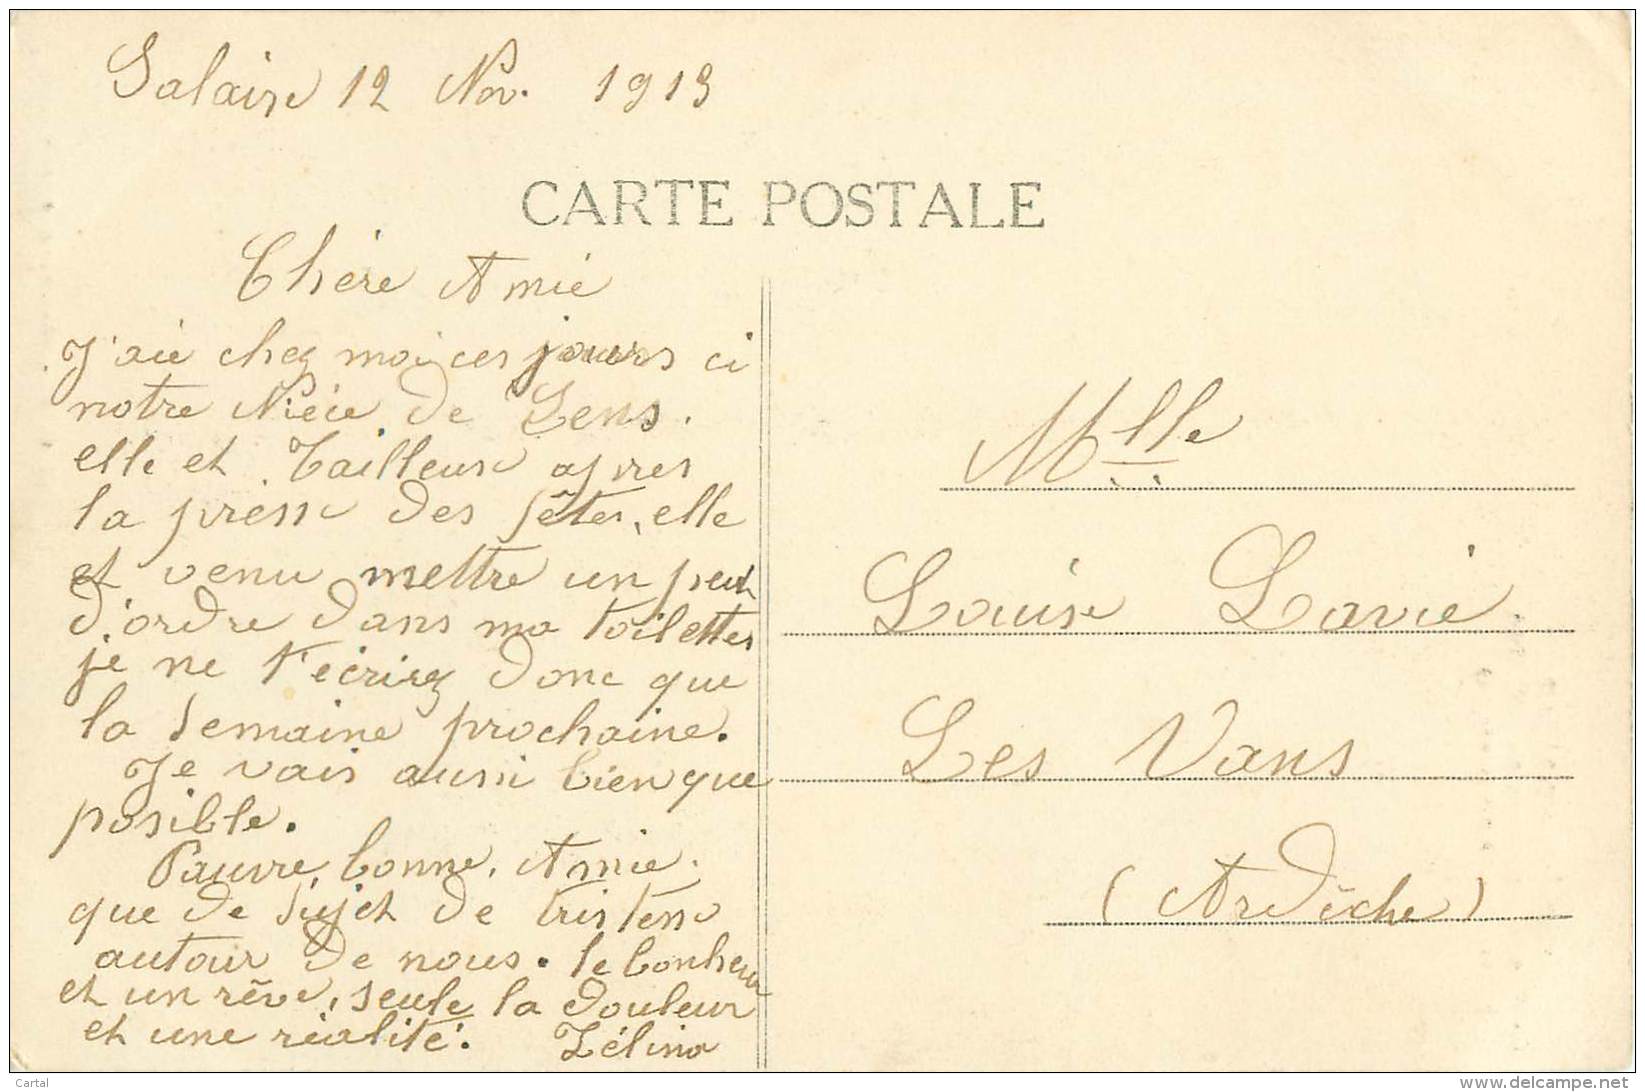 Salaise 12 Nov. 1913
CARTE POSTALE
Chère Amie
J'aie chez moi ces jours ci
notre Nièce de Lens.
elle et Tailleuse apres
la presse des fêtes, elle
et venu mettre un peut
d'ordre dans ma toilettes
je ne t'écrirez donc que
la semaine prochaine.
Je vais aussi bien que
posible.
Pauvre bonne Amie.
que de sujet de tristesse
autour de nous. le bonheur
et un rêve, seule la douleur
et une réalité. Zélina
Mlle
Louise Lavie
Les Vans
(Ardèche)
Cartal
www.delcampe.net